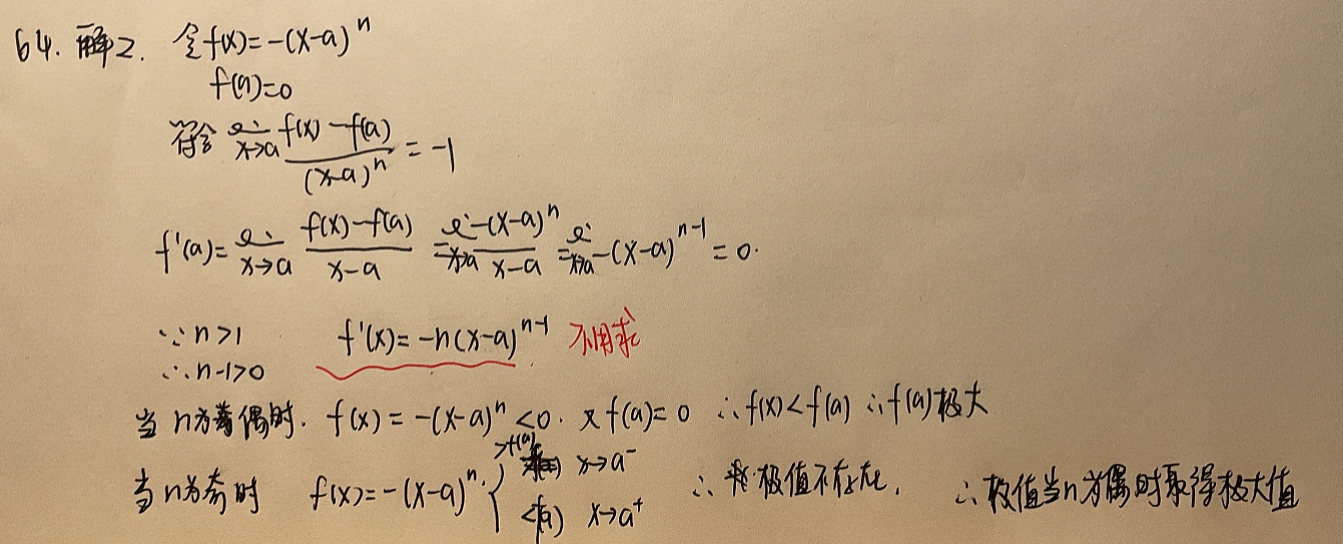 64. 解2. 令f(x)=-(x-a)^n
f(a)=0
符合 lim x→a (f(x)-f(a))/(x-a)^n = -1
f'(a)= lim x→a (f(x)-f(a))/(x-a) = lim x→a (-(x-a)^n)/(x-a) = lim x→a -(x-a)^{n-1} = 0.
∵n>1 f'(x)=-n(x-a)^{n-1} 不用求
∴n-1>0
当n为偶时. f(x)=-(x-a)^n<0. 又f(a)=0 ∴f(x)<f(a) ∴f(a)极大
当n为奇时 f(x)=-(x-a)^n { >f(a) x→a^- <f(a) x→a^+ ∴极值不存在. ∴极值当n为偶时取得极大值